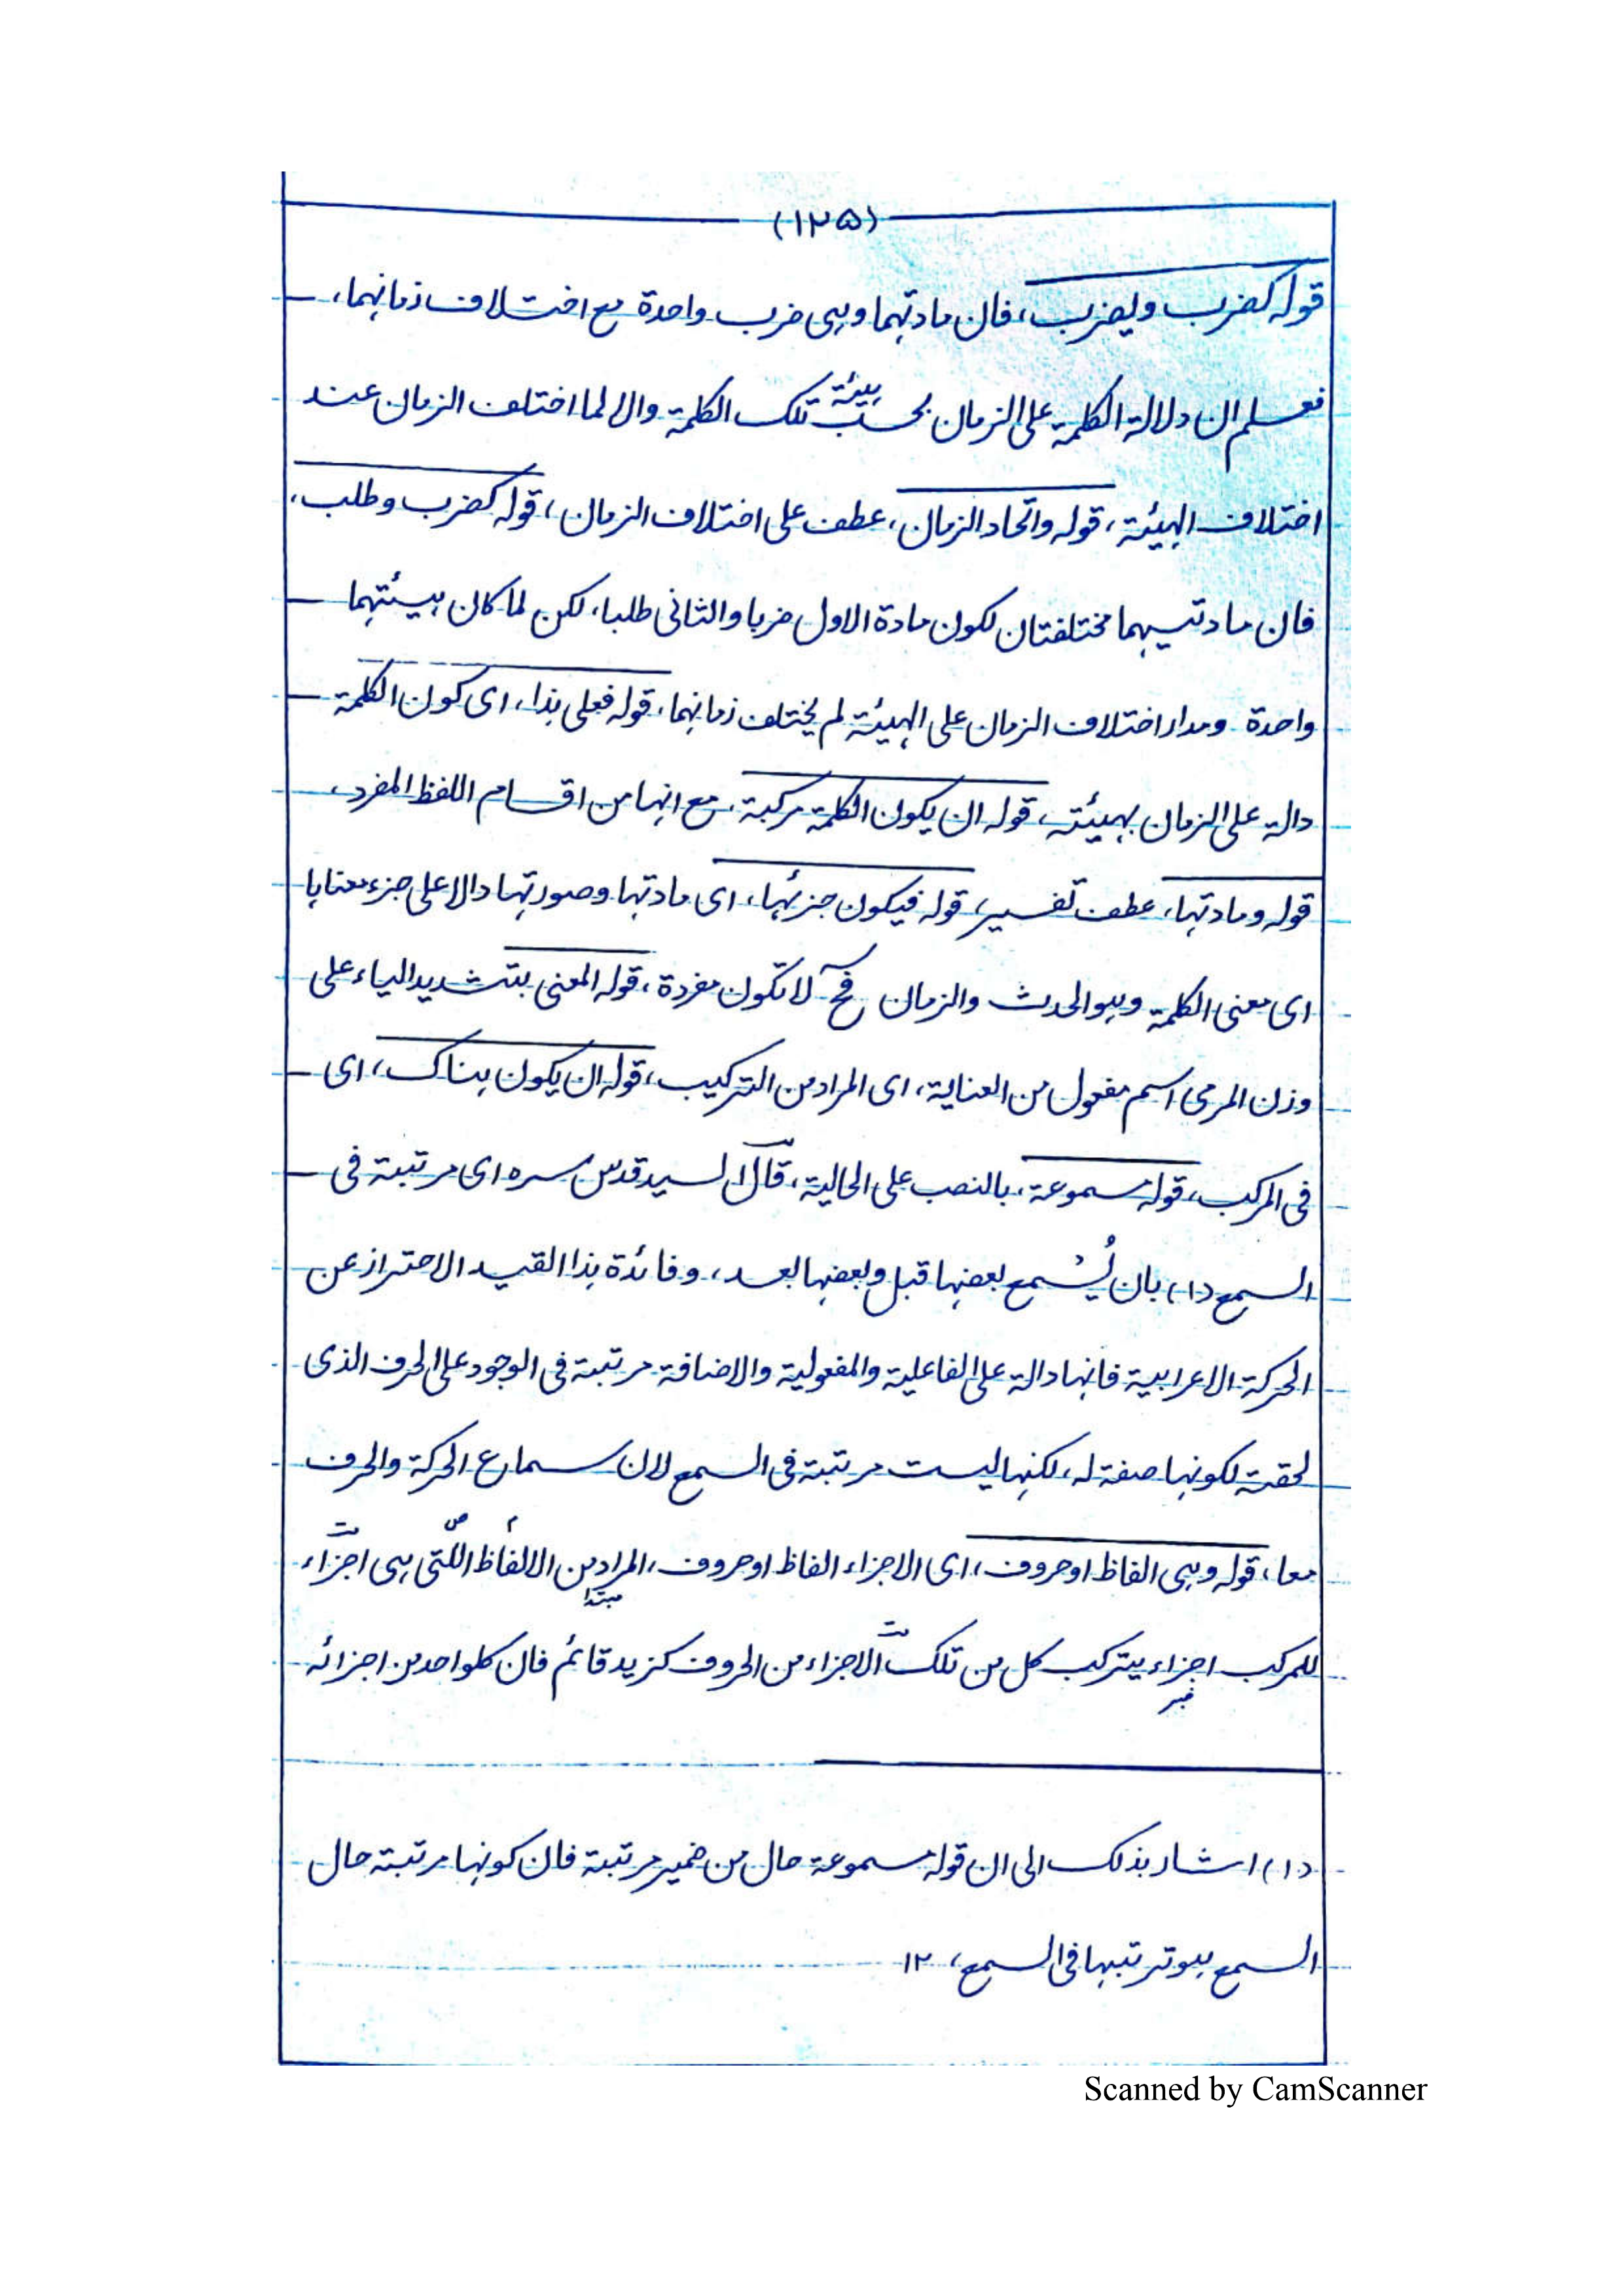 (١٢٥)
قوله كضرب ويضرب، فان مادتهما وهى ضرب واحدة مع اختلاف زمانهما،
فعلم ان دلالة الكلمة على الزمان بحسب هيئة تلك الكلمة والا لما اختلف الزمان عند
اختلاف الهيئة، قوله واتحاد الزمان، عطف على اختلاف الزمان، قوله كضرب وطلب،
فان مادتيهما مختلفتان لكون مادة الاول ضربا والثانى طلبا، لكن لما كان هيئتهما
واحدة ومدار اختلاف الزمان على الهيئة لم يختلف زمانهما، قوله فعلى هذا، اى كون الكلمة
دالة على الزمان بهيئته، قوله ان يكون الكلمة مركبة، مع انها من اقسام اللفظ المفرد،
قوله ومادتها، عطف تفسير، قوله فيكون جزئها، اى مادتها وصورتها دالا على جزء معناها
اى معنى الكلمة وهو الحدث والزمان فح لا تكون مفردة، قوله المعنى بتشديد الياء على
وزن المرمى اسم مفعول من العناية، اى المراد من التركيب، قوله ان يكون هناك، اى
فى المركب، قوله مسموعة، بالنصب على الحالية، قال السيد قدس سره اى مرتبة فى
السمع (١) بان يُسْمع بعضها قبل وبعضها بعد، وفائدة هذا القيد الاحتراز عن
الحركة الاعرابية فانها دالة على الفاعلية والمفعولية والاضافة مرتبة فى الوجود على الحرف الذى
لحقته لكونها صفة له، لكنها ليست مرتبة فى السمع لان سماع الحركة والحرف
معا، قوله وهى الفاظ او حروف، اى الاجزاء الفاظ او حروف، المراد من الالفاظ اللتى هى اجزاء
مبتدا
للمركب اجزاء يتركب كل من تلك الاجزاء من الحروف كزيد قائم فان كلواحد من اجزائه
خبر
(١) اشار بذلك الى ان قوله مسموعة حال من ضمير مرتبة فان كونها مرتبة حال
السمع هو ترتبها فى السمع، ١٢
Scanned by CamScanner